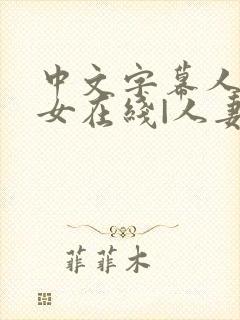 中文字幕人
女在线|人妻
菲菲木